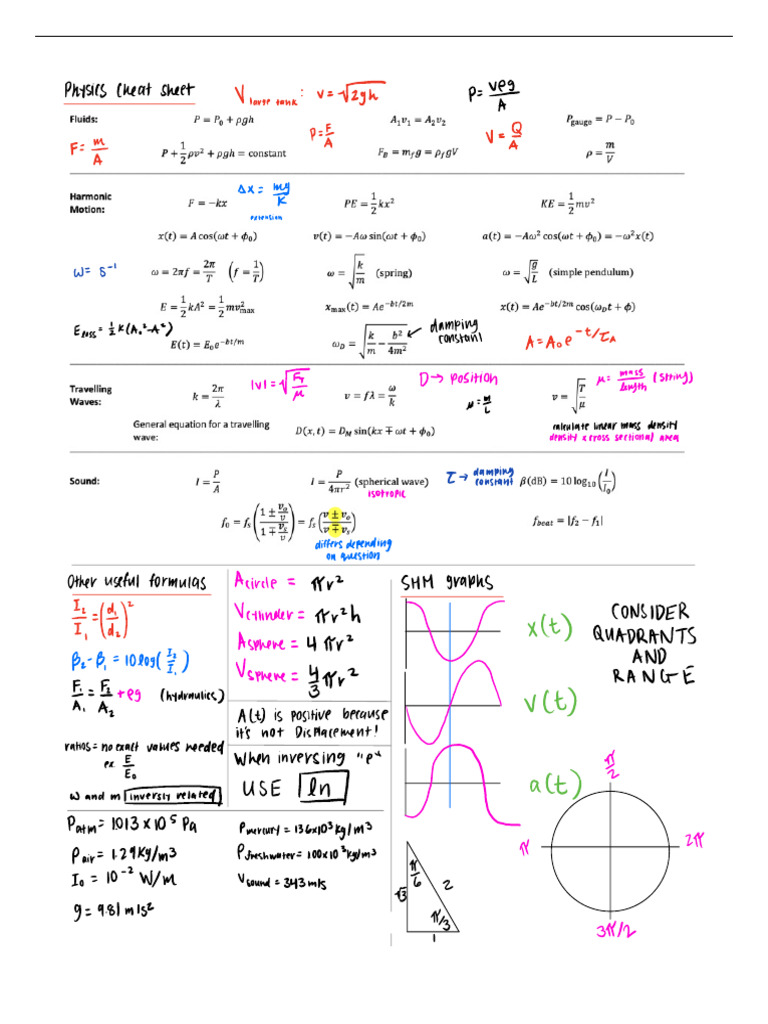 Physics Cheat Sheet
V large tank : v = √2gh
P = Vρg/A
Fluids: P = P₀ + ρgh A₁v₁ = A₂v₂ P_gauge = P − P₀
F = m/A
P = F/A
V = Q/A
P + 1/2 ρv² + ρgh = constant F_B = m_f g = ρ_f gV ρ = m/V
Harmonic Motion: F = −kx PE = 1/2 kx² KE = 1/2 mv²
Δx = mg/K
extension
x(t) = A cos(ωt + ϕ₀) v(t) = −Aω sin(ωt + ϕ₀) a(t) = −Aω² cos(ωt + ϕ₀) = −ω²x(t)
ω = s⁻¹
ω = 2πf = 2π/T (f = 1/T) ω = √k/m (spring) ω = √g/L (simple pendulum)
E = 1/2 kA² = 1/2 mv²max x_max(t) = Ae^−bt/2m x(t) = Ae^−bt/2m cos(ω_D t + ϕ)
E loss = 1/2 K(A₀² − A²)
E(t) = E₀e^−bt/m ω_D = √k/m − b²/4m²
damping constant
A = A₀e^−t/τ_A
Travelling Waves: k = 2π/λ v = fλ = ω/k v = √T/μ
|v| = √F_T/μ
D → position
μ = m/L
μ = mass/length (string)
General equation for a travelling wave: D(x, t) = D_M sin(kx ∓ ωt + ϕ₀)
calculate linear mass density
density x cross sectional area
Sound: I = P/A I = P/4πr² (spherical wave) β(dB) = 10 log₁₀(I/I₀)
isotropic
τ → damping constant
f₀ = f_s((1 ± v_o/v)/(1 ∓ v_s/v)) = f_s((v ± v_o)/(v ∓ v_s)) f_beat = |f₂ − f₁|
differs depending
on question
Other useful formulas
I₂/I₁ = (d₁/d₂)²
β₂ − β₁ = 10 log(I₂/I₁)
F₁/A₁ = F₂/A₂ + ρg (hydraulics)
ratios = no exact values needed
ex. E/E₀
W and m inversly related
A circle = πr²
V cylinder = πr²h
A sphere = 4πr²
V sphere = 4/3 πr²
A(t) is positive because
it's not Displacement!
When inversing "e"
USE ln
P atm = 1.013 x 10⁵ Pa
ρ air = 1.29 kg/m3
I₀ = 10⁻² W/m
g = 9.81 m/s²
ρ mercury = 13.6x10³ kg/m3
ρ freshwater = 1.00x10³ kg/m3
V sound = 343 m/s
SHM graphs
x(t)
v(t)
a(t)
CONSIDER
QUADRANTS
AND
RANGE
π/2
π
2π
3π/2
π/6
√3
2
π/3
1